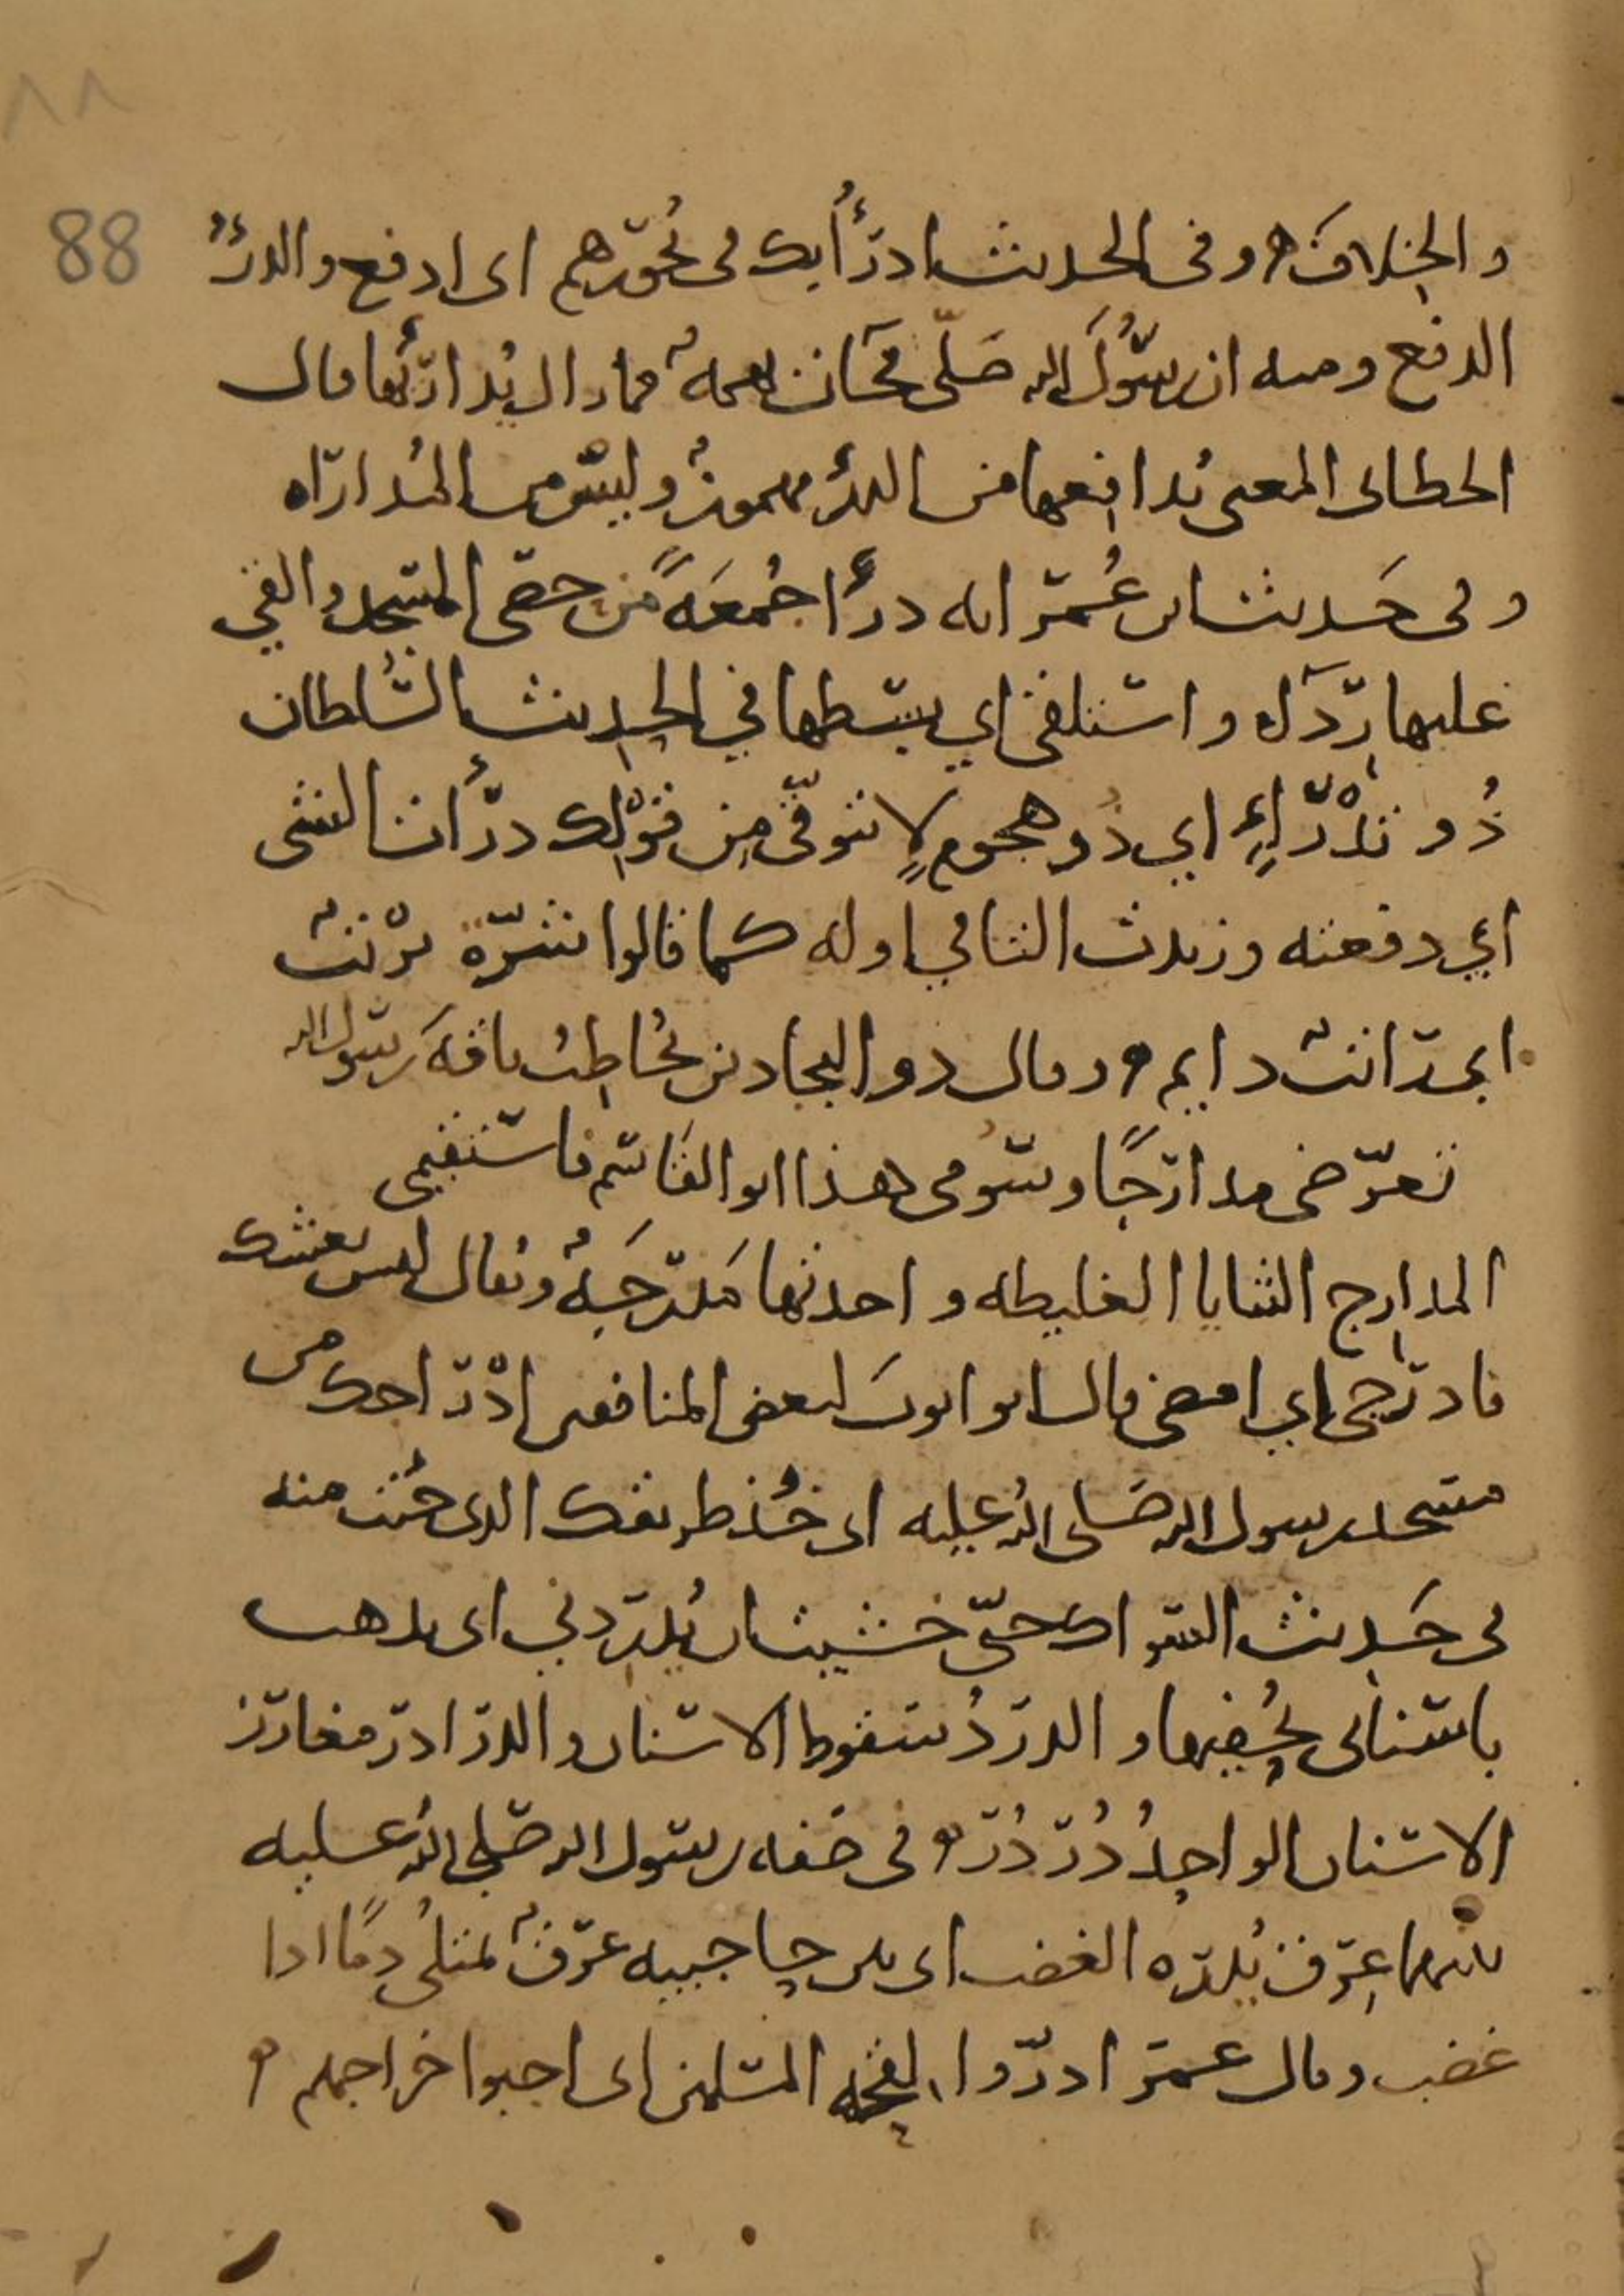 ٨٨
88
والخلاف وفى الحديث ادرأ بك فى نحورهم اى ادفع والدرء
الدفع ومنه ان رسول الله صلى فجات بهمة فما زال يدارئها قال
الخطابى المعنى يدافعها من الدرء مهموز وليس من المداراه
وفى حديث ابن عمر انه درأ جمعة من حصى المسجد والقى
عليها رداءه واستلقى اي بسطها في الحديث السلطان
ذو تدرإ اي ذو هجوم لا يتوقى من قولك درأت الشى
اي دفعته وزيدت التا في اوله كما قالوا تثره ترتب
اى تدانث دايم وقال ذو البجادين يخاطب ناقة رسول الله
تعرضى مدارجا وسومى هذا ابو القاسم فاستقيمى
المدارج الثنايا الغليظه واحدتها مدرجة ويقال ليس بعشك
فادرجى اي امضى قال ابو ايوب لبعض المنافقين ادرَاجك من
مسجد رسول الله صلى الله عليه اى خذ طريقك الذى جئت منه
فى حديث السواك حتى خشيت ان يدردني اى يذهب
باسنانى يحفيها والدرد سقوط الاسنان والدرادر مغارز
الاسنان الواحد دردر وفى صفه رسول الله صلى الله عليه
بينهما عرق يدره الغضب اى بين حاجبيه عرق يمتلى دما اذا
غضب وقال عمر ادروا لقحه المسلمين اى اجبوا خراجهم